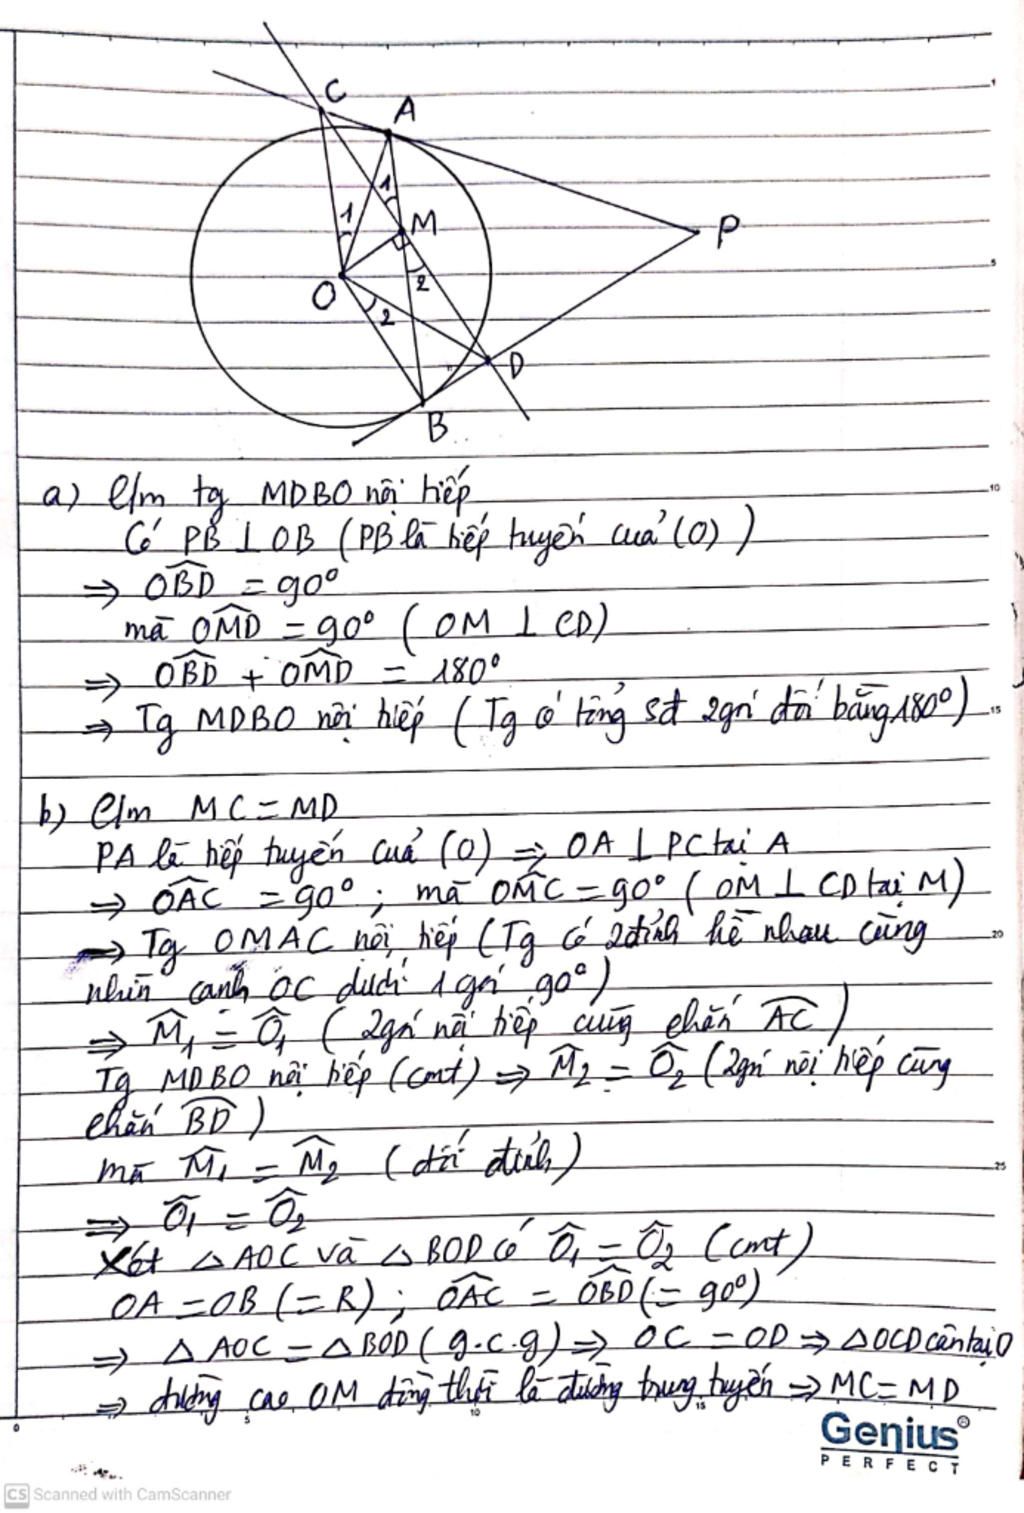 C
A
1
1
M
P
O
2
2
D
B
a) C/m tg MDBO nội tiếp
Có PB ⊥ OB (PB là tiếp tuyến của (O))
⇒ OBD̂ = 90°
mà OMD̂ = 90° (OM ⊥ CD)
⇒ OBD̂ + OMD̂ = 180°
⇒ Tg MDBO nội tiếp (Tg có tổng sđ 2 gní đối bằng 180°)
b) C/m MC = MD
PA là tiếp tuyến của (O) ⇒ OA ⊥ PC tại A
⇒ OAĈ = 90° ; mà OMĈ = 90° (OM ⊥ CD tại M)
⇒ Tg OMAC nội tiếp (Tg có 2 đỉnh kề nhau cùng
nhìn cạnh OC dưới 1 gní 90°)
⇒ M̂₁ = Ô₁ (2 gní nội tiếp cùng chắn AC)
Tg MDBO nội tiếp (cmt) ⇒ M̂₂ = Ô₂ (2 gní nội tiếp cùng
chắn BD)
mà M̂₁ = M̂₂ (đối đỉnh)
⇒ Ô₁ = Ô₂
Xét △AOC và △BOD có Ô₁ = Ô₂ (cmt)
OA = OB (= R) ; OAĈ = OBD̂ (= 90°)
⇒ △AOC = △BOD (g.c.g) ⇒ OC = OD ⇒ △OCD cân tại O
⇒ đường cao OM đồng thời là đường trung tuyến ⇒ MC = MD
1
5
10
15
20
25
0
5
10
15
Genius®
PERFECT
CS Scanned with CamScanner